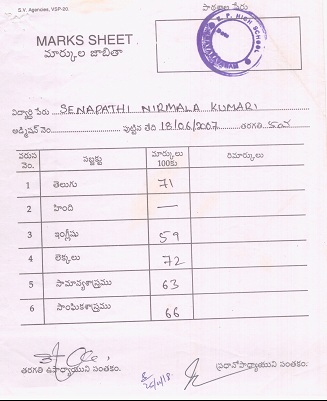 S.V. Agencies, VSP-20.
పాఠశాల పేరు
MARKS SHEET
మార్కుల జాబితా
HIGH SCHOOL
విద్యార్థి పేరు SENAPATHI NIRMALA KUMARI
అడ్మిషన్ నెం. పుట్టిన తేది 18/06/2007 తరగతి
వరుస నెం. సబ్జెక్టు మార్కులు 100కు రిమార్కులు
1 తెలుగు 71
2 హింది —
3 ఇంగ్లీషు 59
4 లెక్కలు 72
5 సామాన్యశాస్త్రము 63
6 సాంఘికశాస్త్రము 66
తరగతి ఉపాధ్యాయుని సంతకం. ప్రధానోపాధ్యాయుని సంతకం.